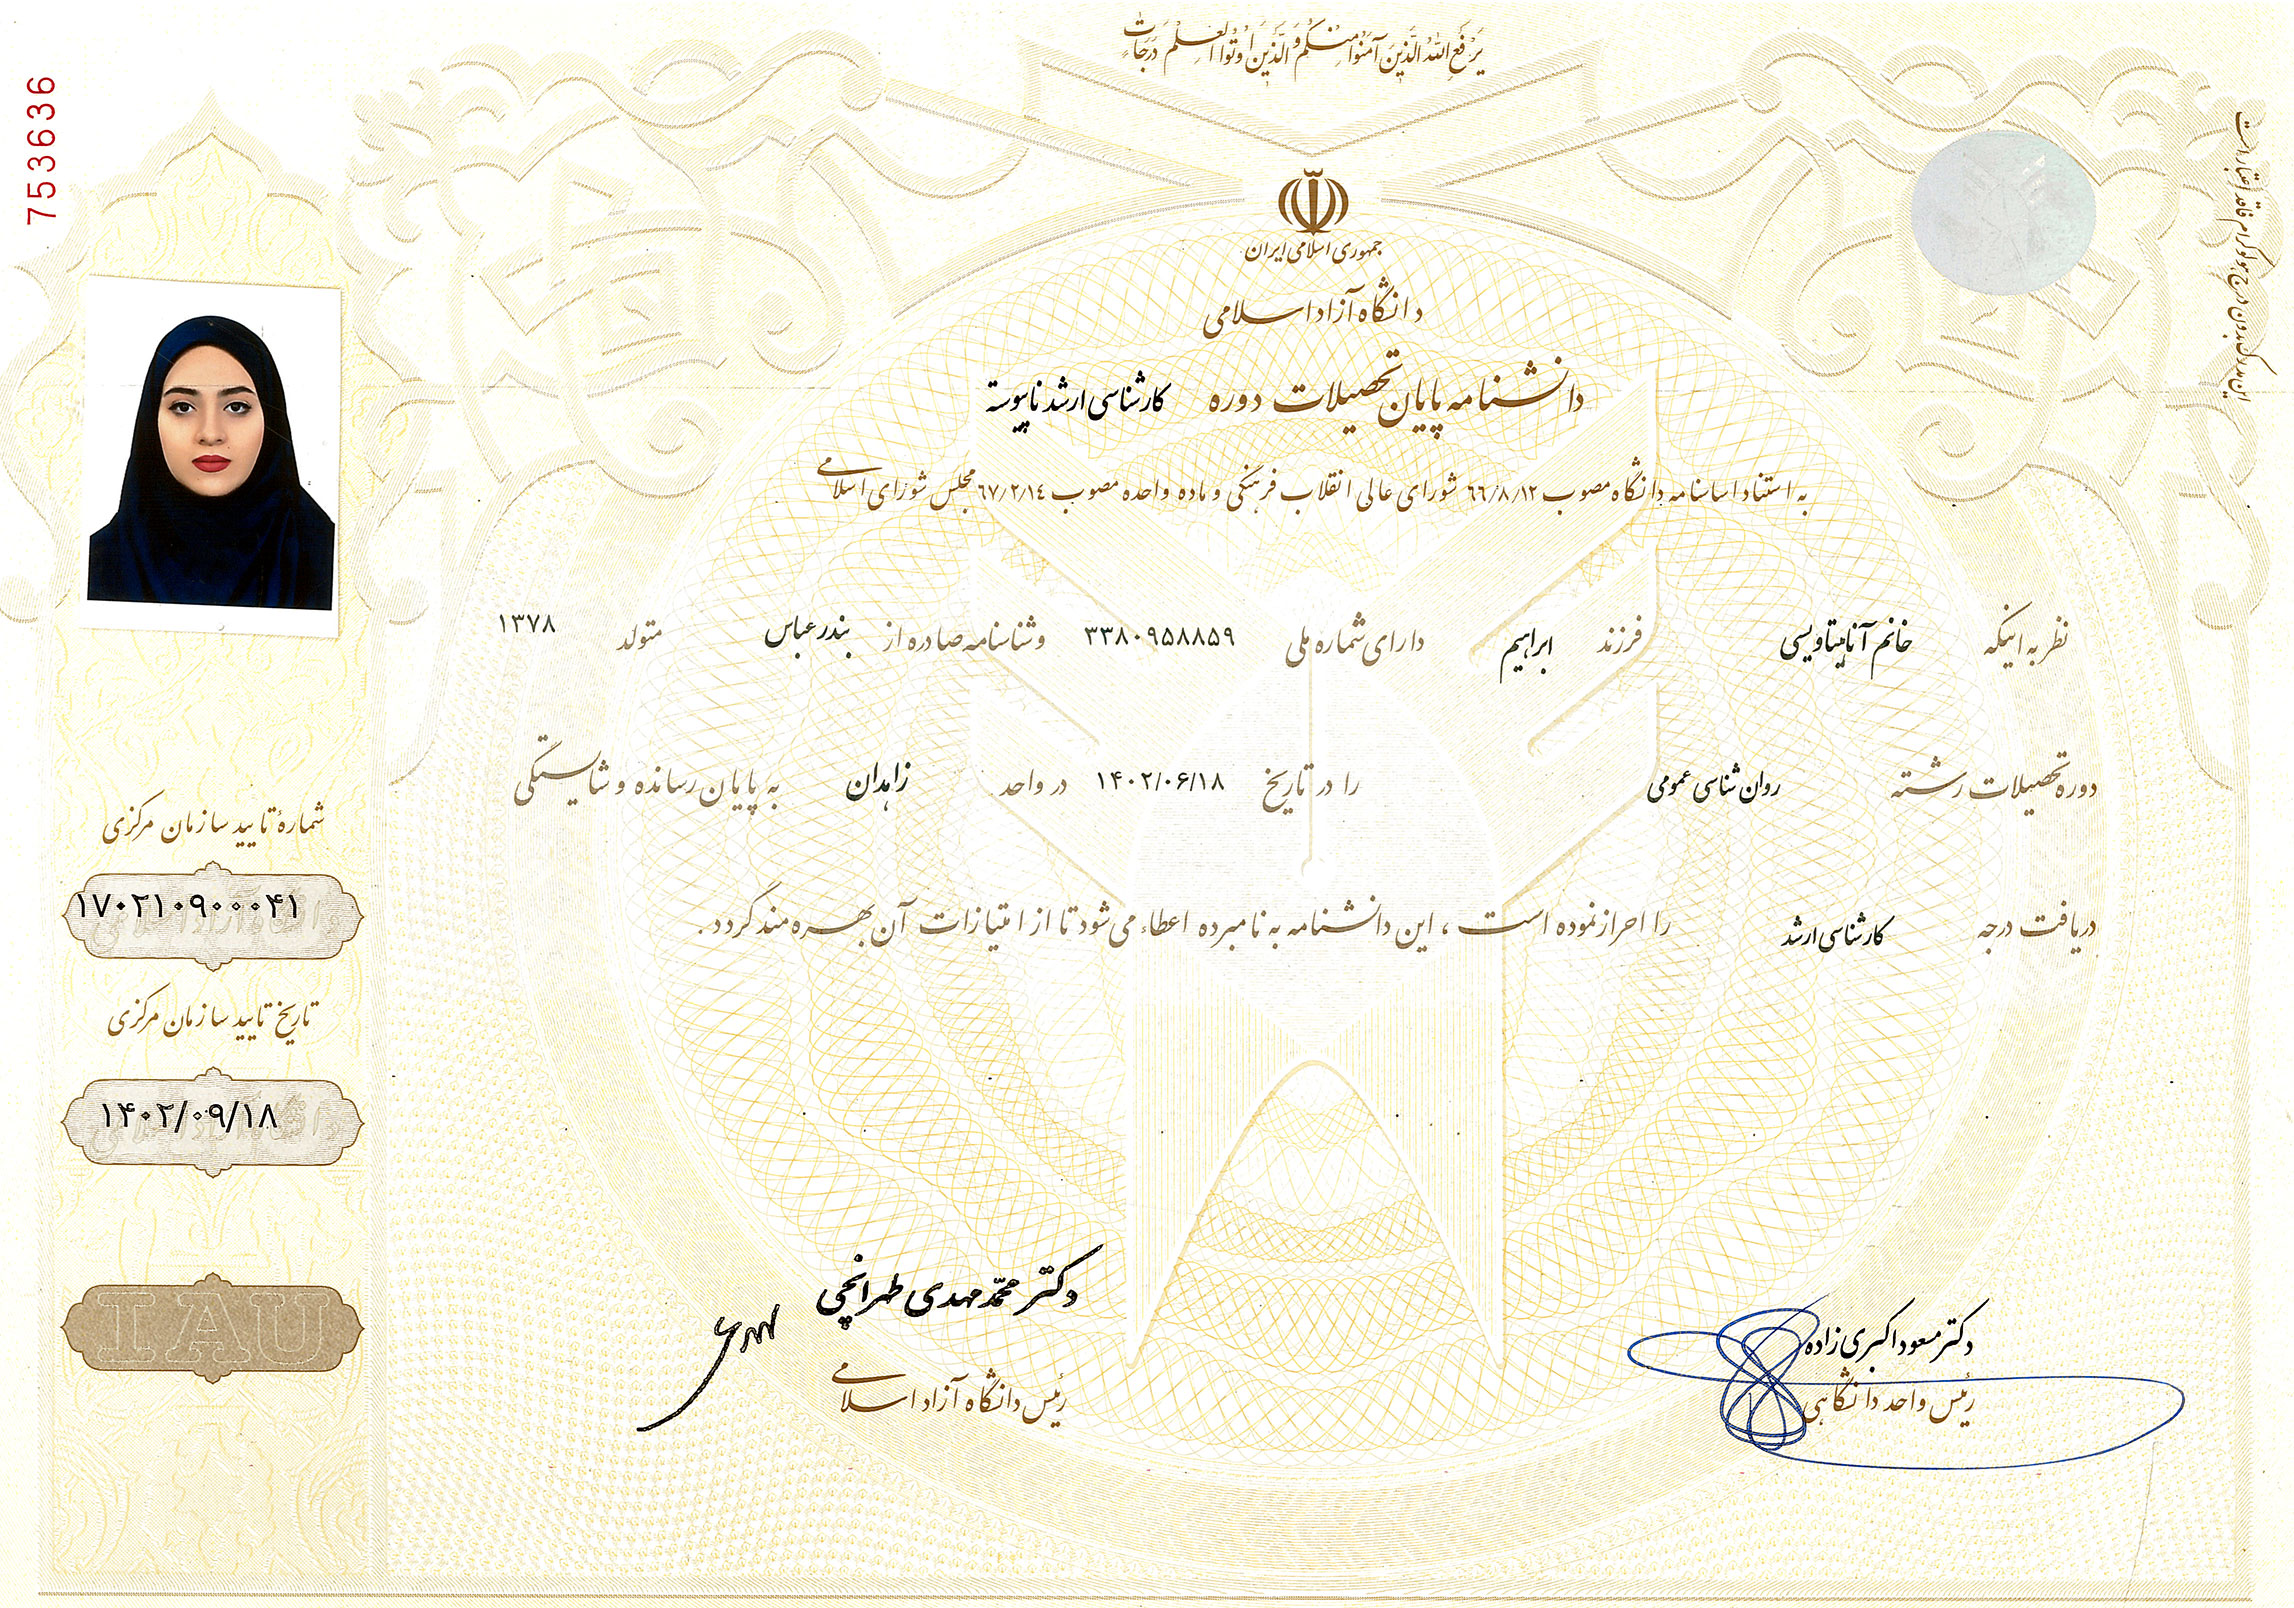 یَرْفَعِ اللهُ الَّذینَ آمَنُوا مِنکُم وَ الَّذینَ اُوتُوا العِلمَ دَرَجَاتٍ
753636
این مدرک بدون درج هولوگرام فاقد اعتبار است
جمهوری اسلامی ایران
دانشگاه آزاد اسلامی
دانشنامه پایان تحصیلات دوره کارشناسی ارشد ناپیوسته
به استناد اساسنامه دانشگاه مصوب ٦٦/٨/١٢ شورای عالی انقلاب فرهنگی و ماده واحده مصوب ٦٧/٢/١٤ مجلس شورای اسلامی
نظر به اینکه خانم آناهیتا ویسی فرزند ابراهیم دارای شماره ملی ۳۳۸۰۹۵۸۸۵۹ و شناسنامه صادره از بندرعباس متولد ۱۳۷۸
دوره تحصیلات رشته روان شناسی عمومی را در تاریخ ۱۴۰۲/۰۶/۱۸ در واحد زاهدان به پایان رسانده و شایستگی
دریافت درجه کارشناسی ارشد را احراز نموده است ، این دانشنامه به نامبرده اعطاء می شود تا از امتیازات آن بهره مند گردد.
شمارهٔ تایید سازمان مرکزی
۱۷۰۲۱۰۹۰۰۰۴۱
تاریخ تایید سازمان مرکزی
۱۴۰۲/۰۹/۱۸
IAU
دکتر مسعود اکبری زاده
رئیس واحد دانشگاهی
دکتر محمّد مهدی طهرانچی
رئیس دانشگاه آزاد اسلامی